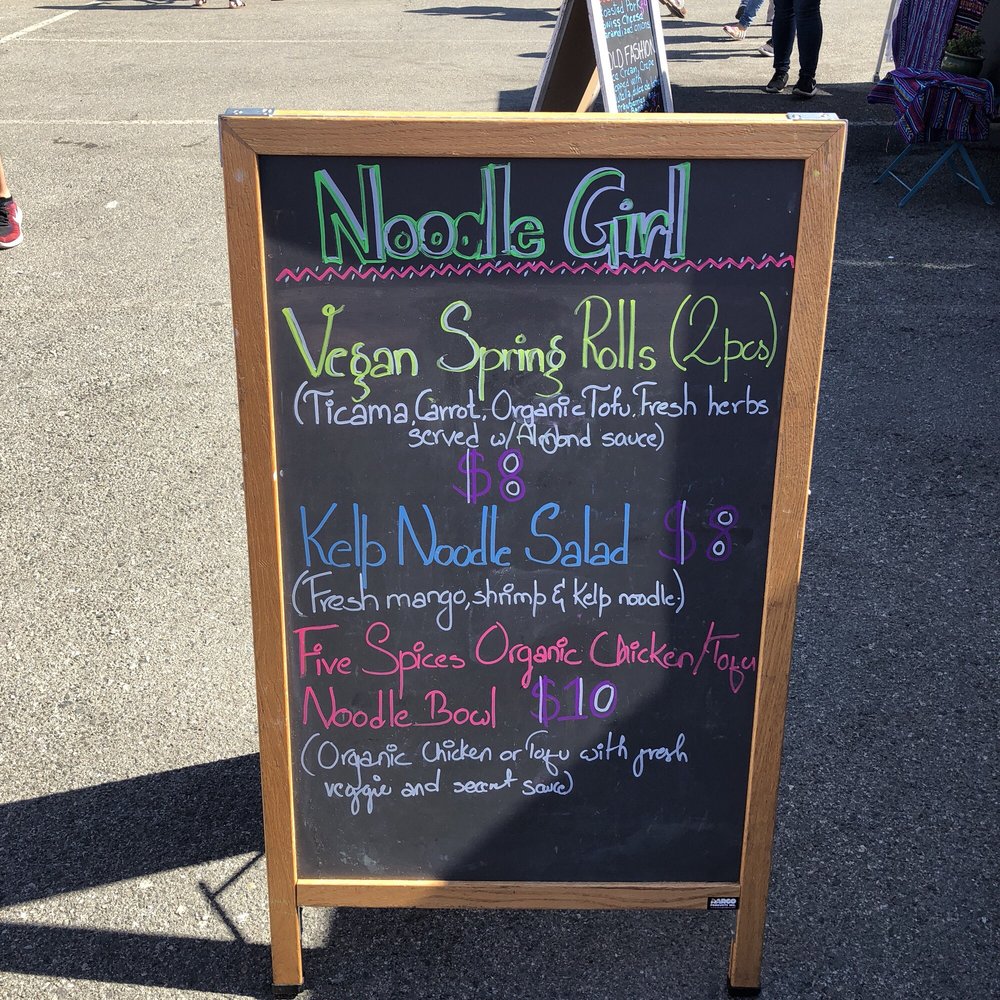 Roasted Pork
Swiss Cheese
OLD FASHION
Ice Cream, Crepe
Noodle Girl
Vegan Spring Rolls (2pcs)
(Ticama, Carrot, Organic Tofu, Fresh herbs
served w/Almond sauce)
$8
Kelp Noodle Salad $8
(Fresh mango, shrimp & Kelp noodle)
Five Spices Organic Chicken/Tofu
Noodle Bowl $10
(Organic Chicken or Tofu with fresh
veggie and secret sauce)